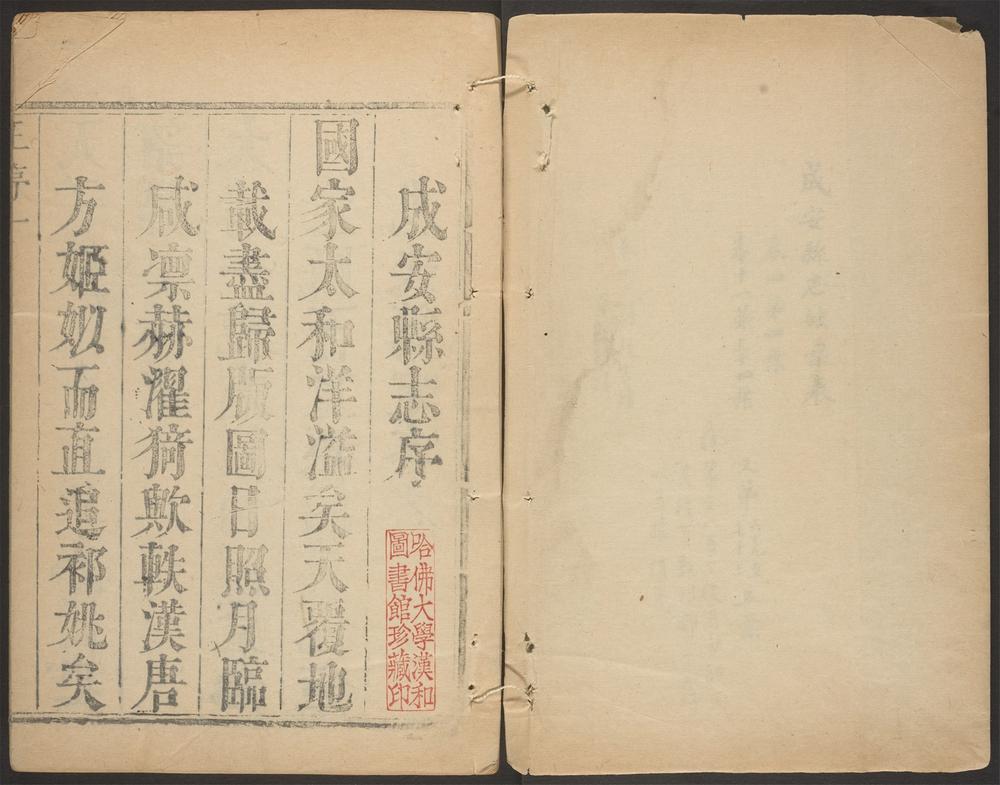 成安縣志序
國家太和洋溢矣天覆地
載盡歸版圖日照月臨
咸凛赫濯猗歟軼漢唐
方姬姒而直追祁姚矣
哈佛大學漢和
圖書館珍藏印